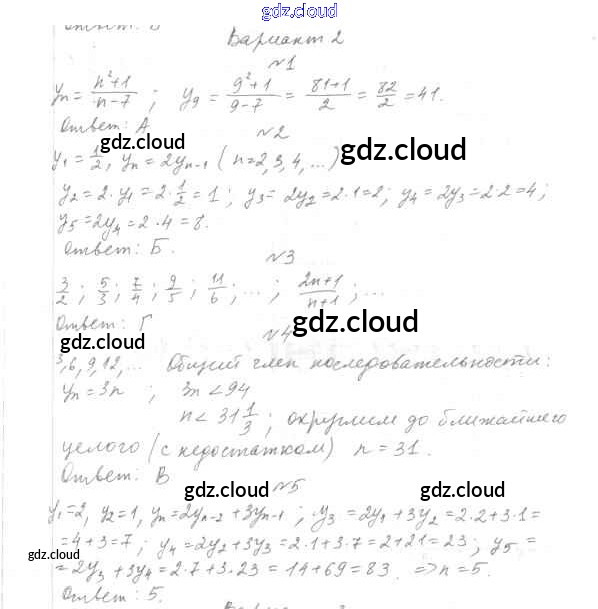 gdz.cloud
Вариант 2
№1
yn = n²+1/n-7 ; y9 = 9²+1/9-7 = 81+1/2 = 82/2 = 41.
Ответ: А
gdz.cloud
№2
y1 = 1/2, yn = 2yn-1 (n=2,3,4,...)
gdz.cloud
y2 = 2·y1 = 2·1/2 = 1; y3 = 2y2 = 2·1 = 2; y4 = 2y3 = 2·2 = 4;
y5 = 2y4 = 2·4 = 8.
Ответ: Б.
№3
3/2; 5/3; 7/4; 9/5; 11/6; ...; 2n+1/n+1; ...
Ответ: Г
gdz.cloud
№4
gdz.cloud
3,6,9,12,... Общий член последовательности:
yn = 3n ; 3n < 94
n < 31 1/3; округлим до ближайшего
целого (с недостатком) n = 31.
Ответ: В
№5
gdz.cloud
gdz.cloud
y1=2, y2=1, yn=2yn-2+3yn-1; y3=2y1+3y2=2·2+3·1=
=4+3=7; y4=2y2+3y3=2·1+3·7=2+21=23; y5=
gdz.cloud
=2y3+3y4=2·7+3·23=14+69=83. => n=5.
Ответ: 5.